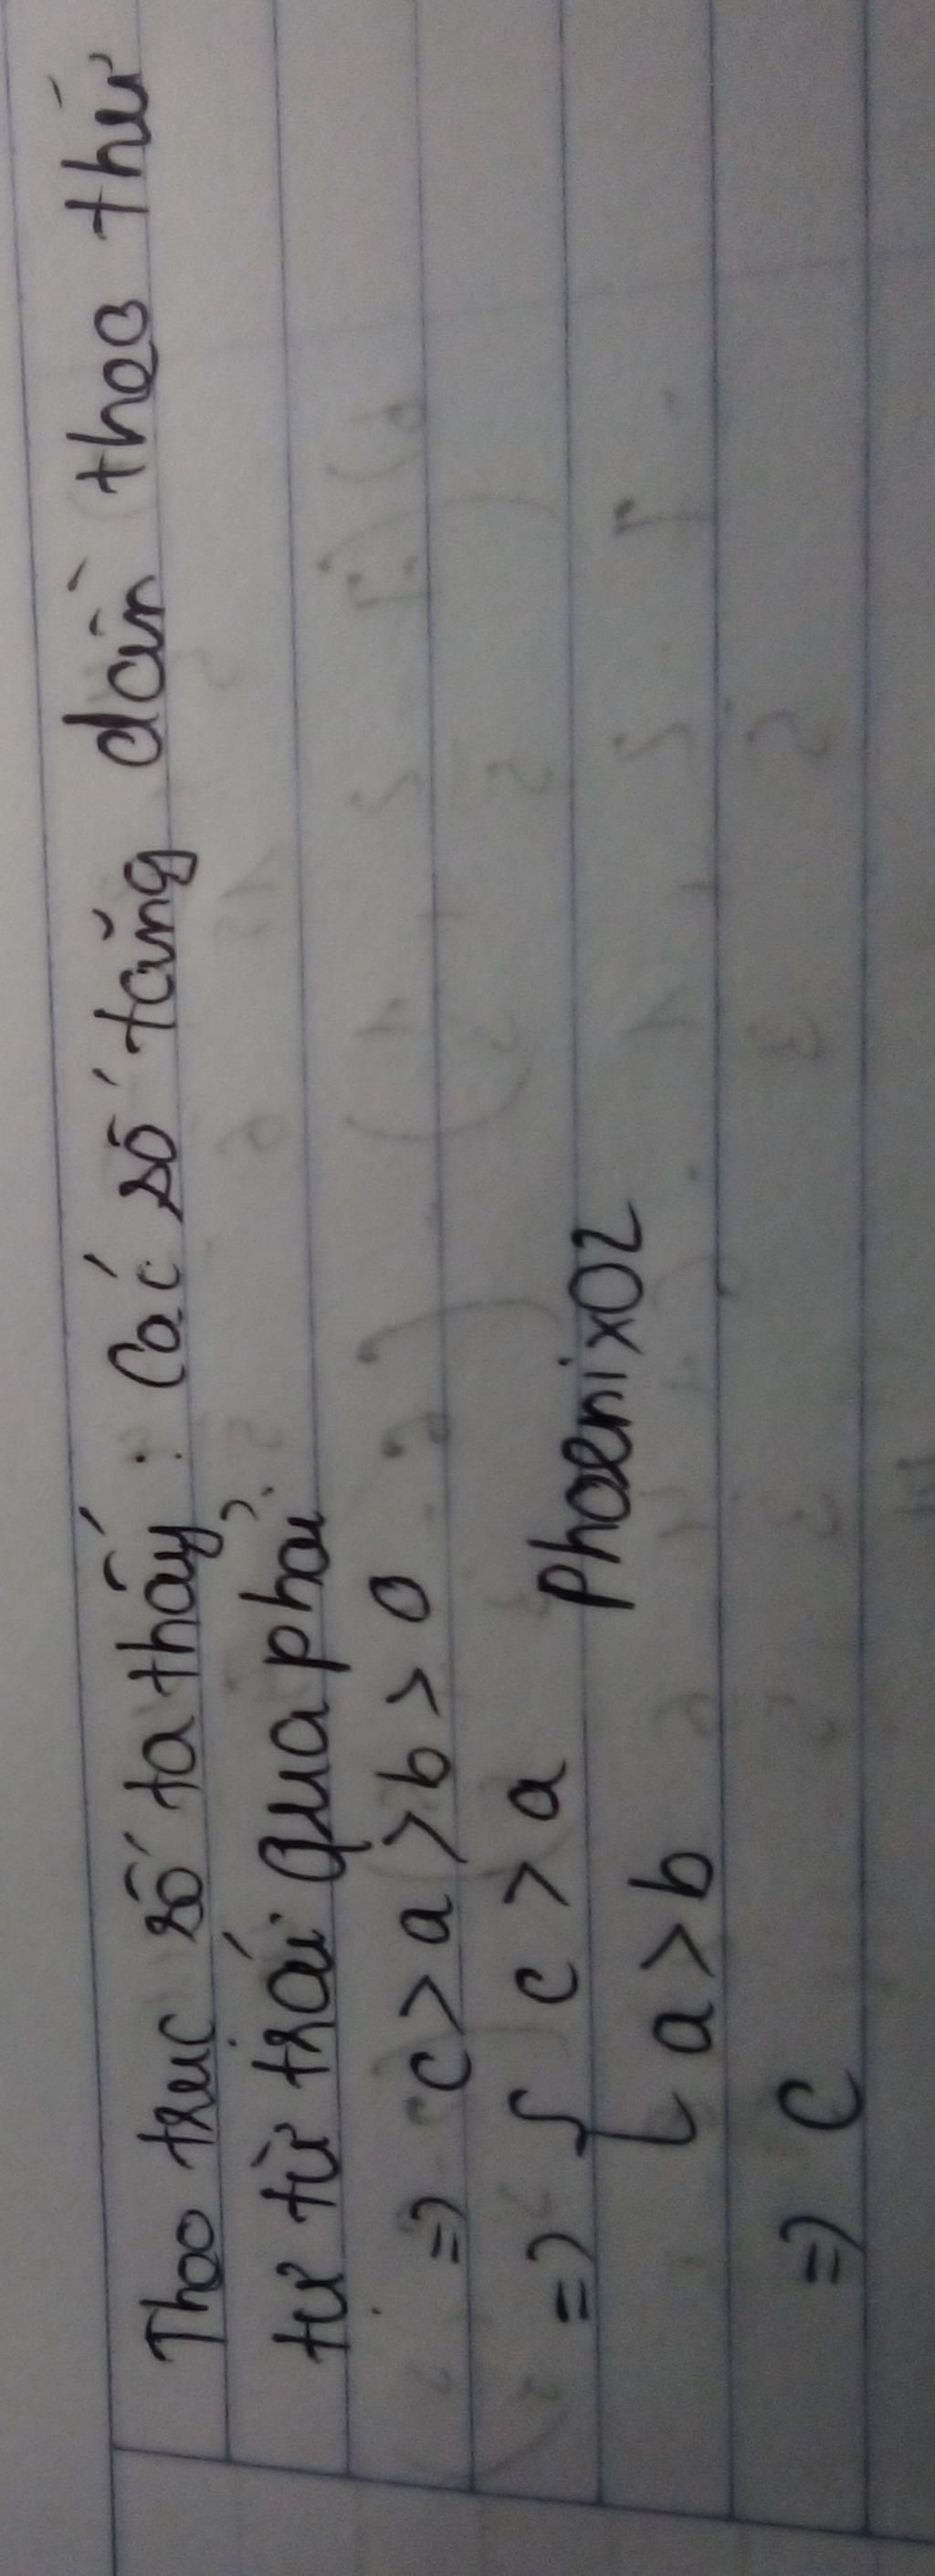 Theo trục số ta thấy: Các số tăng dần theo thứ
tự từ trái qua phải.
=> c > a > b > 0
=> { c > a
Phoenix02
a > b
=> C